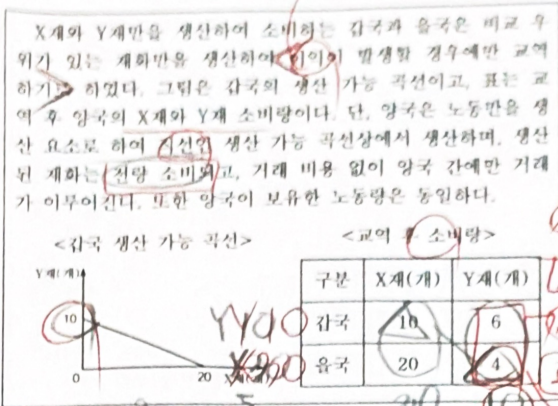 X재와 Y재만을 생산하여 소비하는 갑국과 을국은 비교 우
위가 있는 재화만을 생산하여 이익이 발생할 경우에만 교역
하기로 하였다. 그림은 갑국의 생산 가능 곡선이고, 표는 교
역 후 양국의 X재와 Y재 소비량이다. 단, 양국은 노동만을 생
산 요소로 하여 직선인 생산 가능 곡선상에서 생산하며, 생산
된 재화는 전량 소비되고, 거래 비용 없이 양국 간에만 거래
가 이루어진다. 또한 양국이 보유한 노동량은 동일하다.
<갑국 생산 가능 곡선>
Y재(개)
10
0
20
X재(개)
<교역 후 소비량>
구분 X재(개) Y재(개)
갑국 10 6
을국 20 4